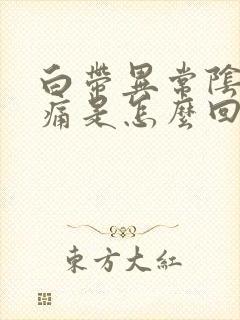 白帶異常陰
痛是怎麼回
東方大紅